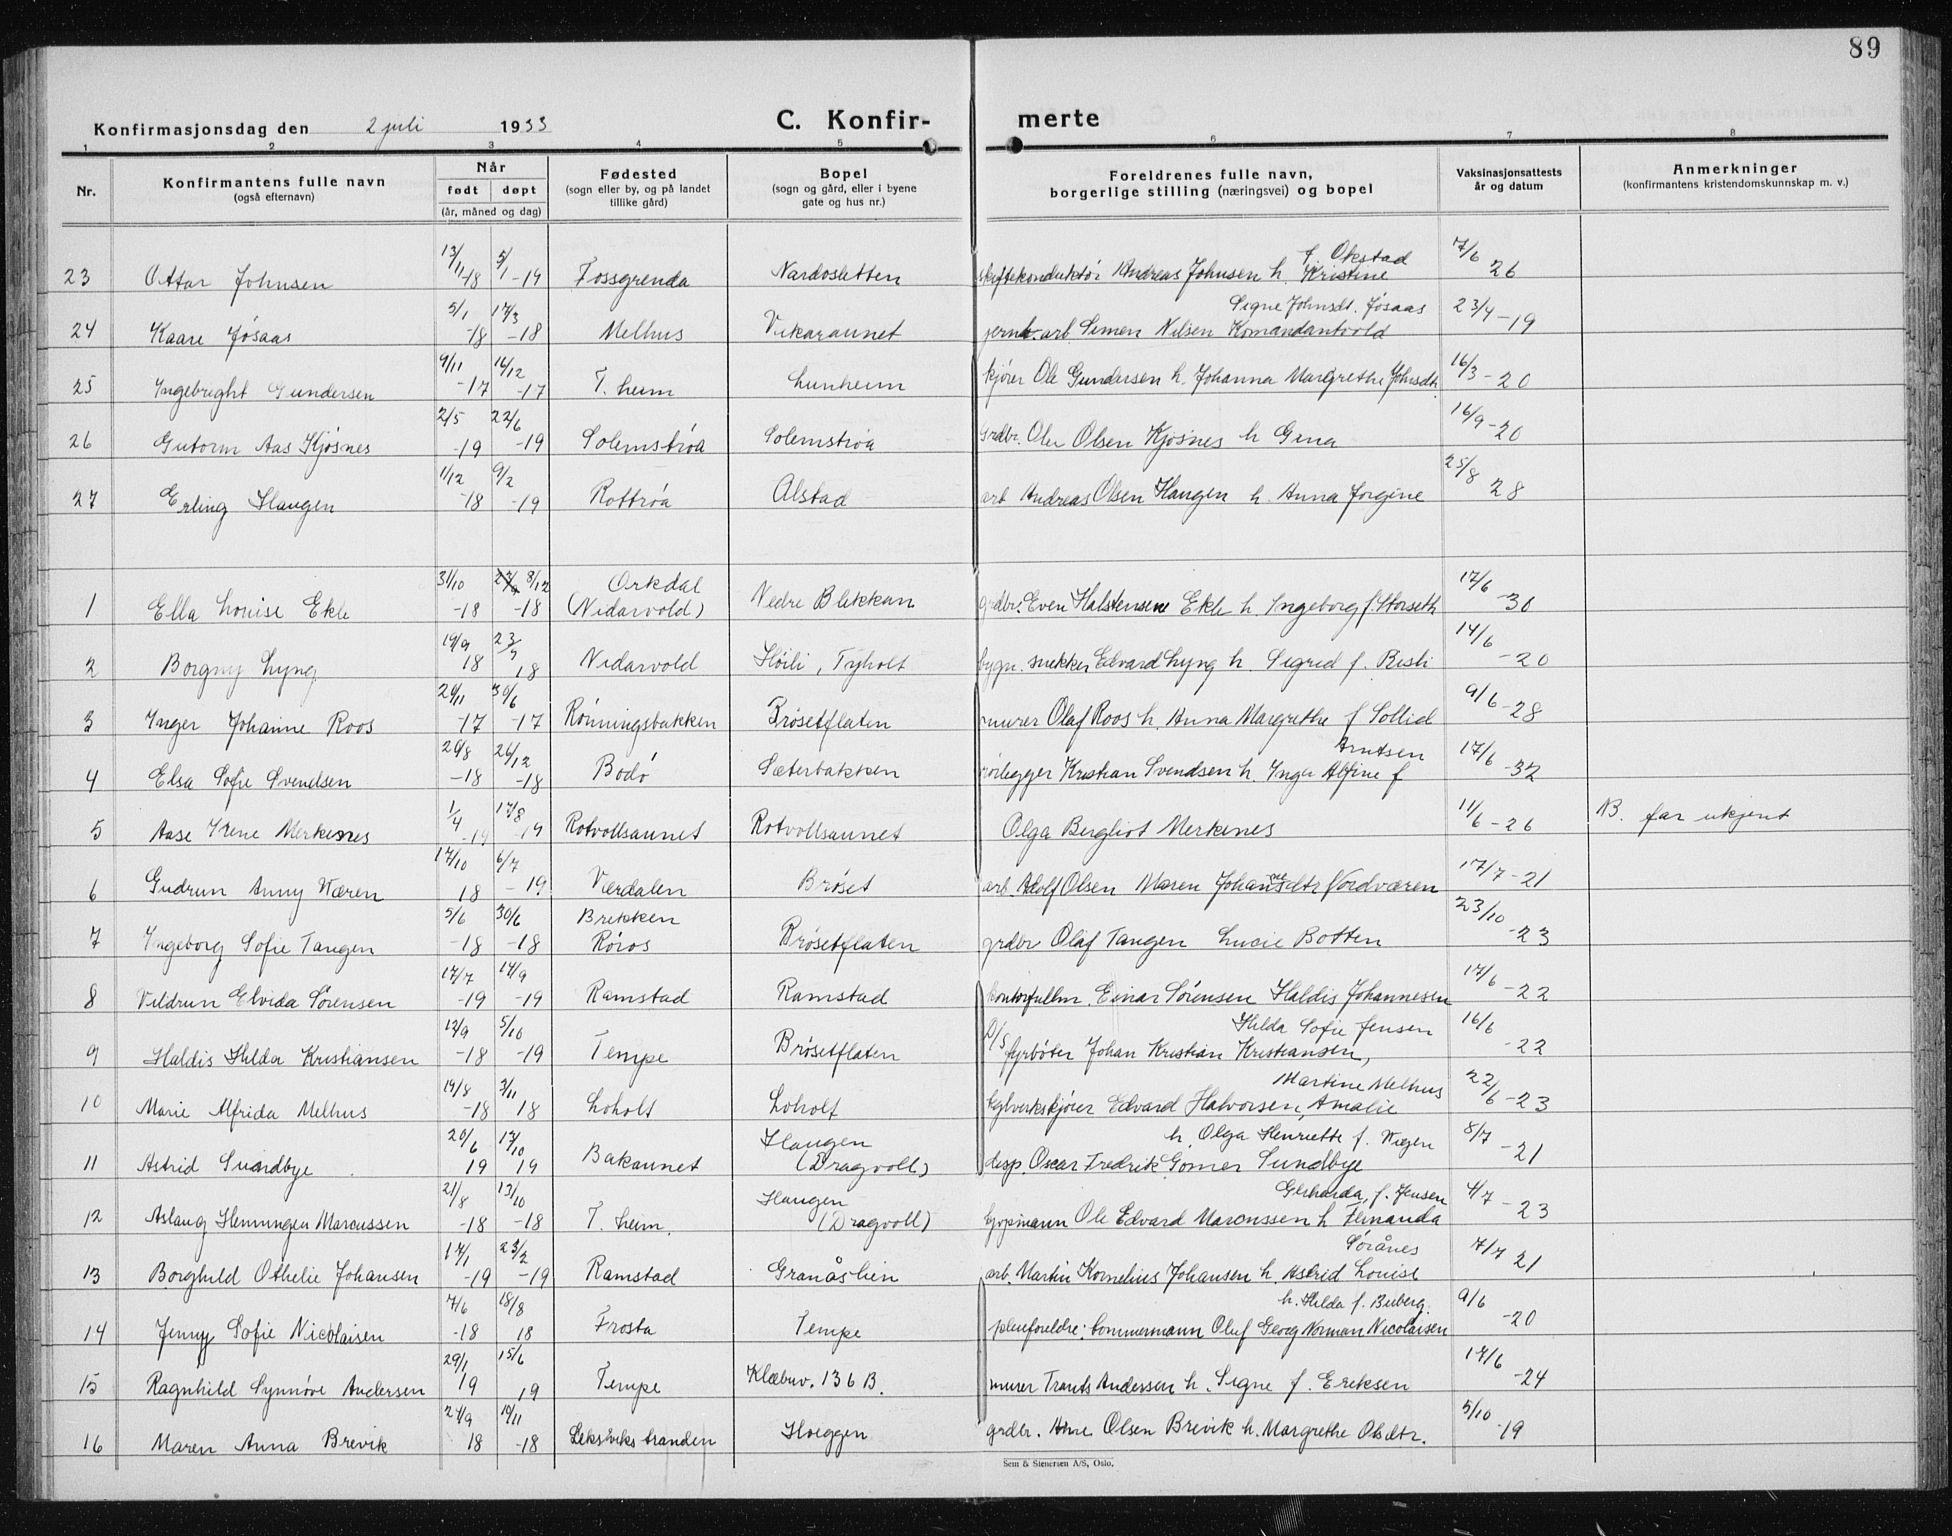 89
Konfirmasjonsdag den 2 juli 1933 C. Konfir- merte
1 2 3 4 5 6 7 8
Nr. Konfirmantens fulle navn (også efternavn) Når født døpt (år, måned og dag) Fødested (sogn eller by, og på landet tillike gård) Bopel (sogn og gård, eller i byene gate og hus nr.) Foreldrenes fulle navn, borgerlige stilling (næringsvei) og bopel Vaksinasjonsattests år og datum Anmerkninger (konfirmantens kristendomskunnskap m. v.)
23 Ottar Johnsen 13/11-18 5/1-19 Fossgrenda Nardosletten skiftekonduktör Andreas Johnsen h. Kristine f. Okstad 7/6 26
24 Kaare Jøsaas 5/1-18 17/3-18 Melhus Vikaraunet jernb. arb Simen Nilsen Komandantvold Signe Johnsdt. Jøsaas 23/4-19
25 Ingebright Gundersen 9/11-17 16/12-17 T. heim Lunheim kjører Ole Gundersen h. Johanna Margrethe Johnsdt. 16/3-20
26 Gutorm Aas Kjøsnes 2/5-19 22/6-19 Solemstrøa Solemstrøa grdbr. Ole Olsen Kjøsnes h Gina 16/9-20
27 Erling Haugen 1/12-18 9/2-19 Rottrøa Alstad arb Andreas Olsen Haugen h. Anna Jorgine 25/8 28
1 Ella Louise Ekle 31/10-18 8/12-18 Orkdal (Nidarvold) Nedre Blekkan grdbr. Even Halstensen Ekle h. Ingeborg f. Storseth 17/6-30
2 Borgny Lyng 19/9 18 23/9 18 Nidarvold Høili, Tyholt bygn. snekker Edvard Lyng h. Sigrid f. Risli 14/6-20
3 Inger Johanne Roos 29/11-17 30/6-17 Rönningsbakken Brøsetflaten murer Olaf Roos h. Anna Margrethe f Sollid 9/6-28
4 Elsa Sofie Svendsen 29/8-18 26/12-18 Bodö Sæterbakken rörlegger Kristian Svendsen h. Inga Alfine f Arntsen 17/6-32
5 Aase Irene Merkesnes 1/4-19 17/8-19 Rotvollsaunet Rotvollsaunet Olga Bergliot Merkenes 11/6-26 NB. far ukjent
6 Gudrun Anny Væren 17/10 18 6/7-19 Værdalen Brøset arb. Adolf Olsen Maren Johansdtr Nordværen 17/7-21
7 Ingeborg Sofie Tangen 5/6-18 30/6-18 Brekken Röros Brøsetflaten grdbr Olaf Tangen Lucie Botten 23/10-23
8 Vildrun Elvida Sörensen 17/7-19 14/9-19 Ramstad Ramstad kontorfullm. Einar Sörensen Haldis Johannesen 17/6-22
9 Haldis Hilda Kristiansen 12/9-18 5/10-19 Tempe Brøsetflaten D/S fyrböter Johan Kristian Kristiansen, Hilda Sofie Jensen 16/6-22
10 Marie Alfrida Melhus 19/8-18 3/11 18 Loholt Loholt teglverkskjører Edvard Halvorsen, Amalie Martine Melhus 22/6-23
11 Astrid Sundbye 20/6 19 17/10 19 Bakaunet Haugen (Dragvoll) desp. Oscar Fredrik Gomer Sundbye h. Olga Henriette f. Wigen 8/7-21
12 Aslaug Henningen Marcussen 21/8-18 13/10-18 T. heim. Haugen (Dragvoll) kjøpmann Ole Edvard Marcussen h Fernanda Gerharda, f. Jensen 4/7-23
13 Borghild Othelie Johansen 17/1-19 23/2-19 Ramstad Granåslien arb. Martin Kornelius Johansen h. Astrid Louise Sörånes 7/7 21
14 Jenny Sofie Nicolaisen 7/6-18 18/8 18 Frosta Tempe pleieforeldre: tømmermann Oluf Georg Norman Nicolaisen h. Hilda f. Buberg. 9/6-20
15 Ragnhild Synnöve Andersen 29/1 19 15/6 19 Tempe Klæbuv. 136 B. murer Trants Andersen h. Signe f. Eriksen 17/6-24
16 Maren Anna Brevik 24/9 18 10/11-18 Leksviksstranden Hoeggen grdbr. Arne Olsen Brevik h. Margrethe Olsdtr. 5/10-19
Sem & Stenersen A/S, Oslo.